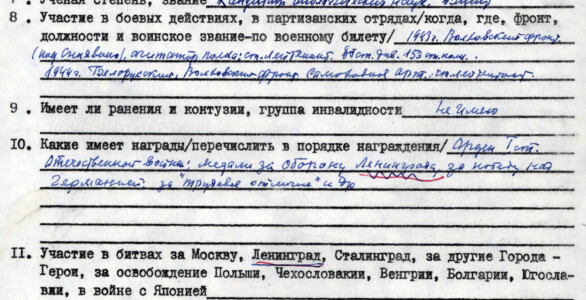 7. Ученая степень, звание Кандидат
8. Участие в боевых действиях, в партизанских отрядах/когда, где, фронт,
должности и воинское звание-по военному билету/ 1943г. Волховский фронт
(под Синявино), агитатор полка: ст. лейтенант.
1944г. Белорусский, Волховский фронт Самоходная арт.
9. Имеет ли ранения и контузии, группа инвалидности не имею
IO. Какие имеет награды/перечислить в порядке награждения/ Орден I ст.
Отечественной войны; медали за оборону Ленинграда, за победу над
Германией за "трудовое отличие" и др
II. Участие в битвах за Москву, Ленинград, Сталинград, за другие Города -
Герои, за освобождение Польши, Чехословакии, Венгрии, Болгарии, Югосла-
вии, в войне с Японией